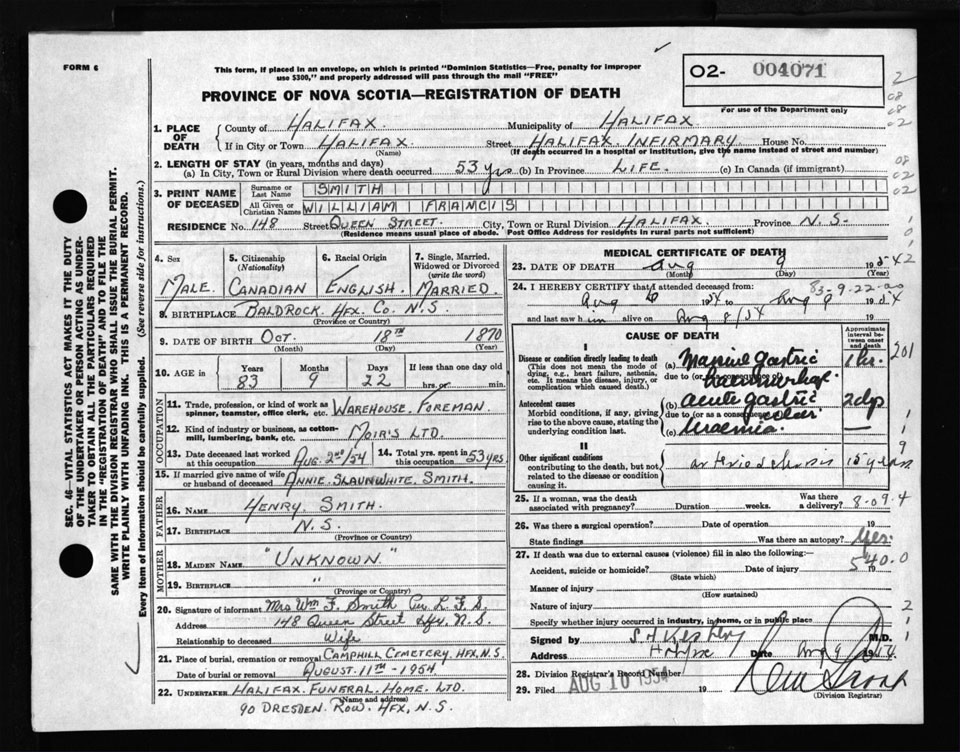 FORM 6
This form, if placed in an envelope, on which is printed "Dominion Statistics—Free, penalty for improper
use $300," and properly addressed will pass through the mail "FREE"
PROVINCE OF NOVA SCOTIA—REGISTRATION OF DEATH
O2- 004071
For use of the Department only
2
08
08
02
08
02
02
SEC. 46—VITAL STATISTICS ACT MAKES IT THE DUTY
OF THE UNDERTAKER OR PERSON ACTING AS UNDER-
TAKER TO OBTAIN ALL THE PARTICULARS REQUIRED
IN THE "REGISTRATION OF DEATH" AND TO FILE THE
SAME WITH THE DIVISION REGISTRAR WHO SHALL ISSUE THE BURIAL PERMIT.
WRITE PLAINLY WITH UNFADING INK. THIS IS A PERMANENT RECORD.
Every item of information should be carefully supplied. (See reverse side for instructions.)
1. PLACE OF DEATH
County of HALIFAX. Municipality of HALIFAX
If in City or Town HALIFAX Street HALIFAX INFIRMARY House No.
(Name) (If death occurred in a hospital or institution, give the name instead of street and number)
2. LENGTH OF STAY (in years, months and days)
(a) In City, Town or Rural Division where death occurred 53 yrs (b) In Province LIFE. (c) In Canada (if immigrant)
3. PRINT NAME OF DECEASED
Surname or Last Name SMITH
All Given or Christian Names WILLIAM FRANCIS
RESIDENCE No. 148 Street QUEEN STREET. City, Town or Rural Division HALIFAX. Province N.S.
(Residence means usual place of abode. Post Office Address for residents in rural parts not sufficient)
4. Sex MALE.
5. Citizenship (Nationality) CANADIAN
6. Racial Origin ENGLISH.
7. Single, Married, Widowed or Divorced (write the word) MARRIED.
8. BIRTHPLACE BALDROCK. HFX. CO. N.S.
(Province or Country)
9. DATE OF BIRTH OCT. 18TH 1870
(Month) (Day) (Year)
10. AGE in Years Months Days If less than one day old
83 9 22 hrs. or min.
OCCUPATION
11. Trade, profession, or kind of work as
spinner, teamster, office clerk, etc. WAREHOUSE. FOREMAN.
12. Kind of industry or business, as cotton-
mill, lumbering, bank, etc. MOIR'S LTD.
13. Date deceased last worked at this occupation AUG. 2ND/54
14. Total yrs. spent in this occupation 53 YRS.
15. If married give name of wife
or husband of deceased ANNIE. SLAUNWHITE. SMITH.
FATHER
16. Name HENRY. SMITH.
17. Birthplace N.S.
(Province or Country)
MOTHER
18. Maiden Name "UNKNOWN."
19. Birthplace "
(Province or Country)
20. Signature of informant Mrs Wm F. Smith Per L. F. S.
Address 148 Queen Street Hfx. N.S.
Relationship to deceased Wife
21. Place of burial, cremation or removal CAMPHILL CEMETERY. HFX, N.S.
Date of burial or removal AUGUST. 11TH - 1954
22. UNDERTAKER HALIFAX. FUNERAL. HOME. LTD.
(Name and address)
90 DRESDEN. ROW. HFX, N.S.
MEDICAL CERTIFICATE OF DEATH
23. DATE OF DEATH Aug 9 1954
(Month) (Day) (Year)
24. I HEREBY CERTIFY that I attended deceased from: 83-9-22
Aug 1954 to Aug 9 1954
and last saw him alive on Aug 8/54
CAUSE OF DEATH
Approximate interval between onset and death
I
Disease or condition directly leading to death
(This does not mean the mode of dying, e.g., heart failure, asthenia, etc. It means the disease, injury, or complication which caused death.)
(a) Massive gastric haemorrhage 1 hr.
due to (or as a consequence of)
Antecedent causes
Morbid conditions, if any, giving rise to the above cause, stating the underlying condition last.
(b) acute gastric ulcer 2 dys
due to (or as a consequence of)
(c) Uraemia —
II
Other significant conditions
contributing to the death, but not related to the disease or condition causing it.
arteriosclerosis 15 years
25. If a woman, was the death
associated with pregnancy? Duration weeks. Was there a delivery? 8-09.4
26. Was there a surgical operation? Date of operation 19
State findings Was there an autopsy? Yes.
27. If death was due to external causes (violence) fill in also the following:
540.0
Accident, suicide or homicide? Date of injury 19
(State which)
Manner of injury
(How sustained)
Nature of injury
Specify whether injury occurred in industry, in home, or in public place
Signed by M.D.
Address Halifax Date Aug 9 1954.
28. Division Registrar's Record Number
29. Filed AUG 10 1954 19
(Division Registrar)